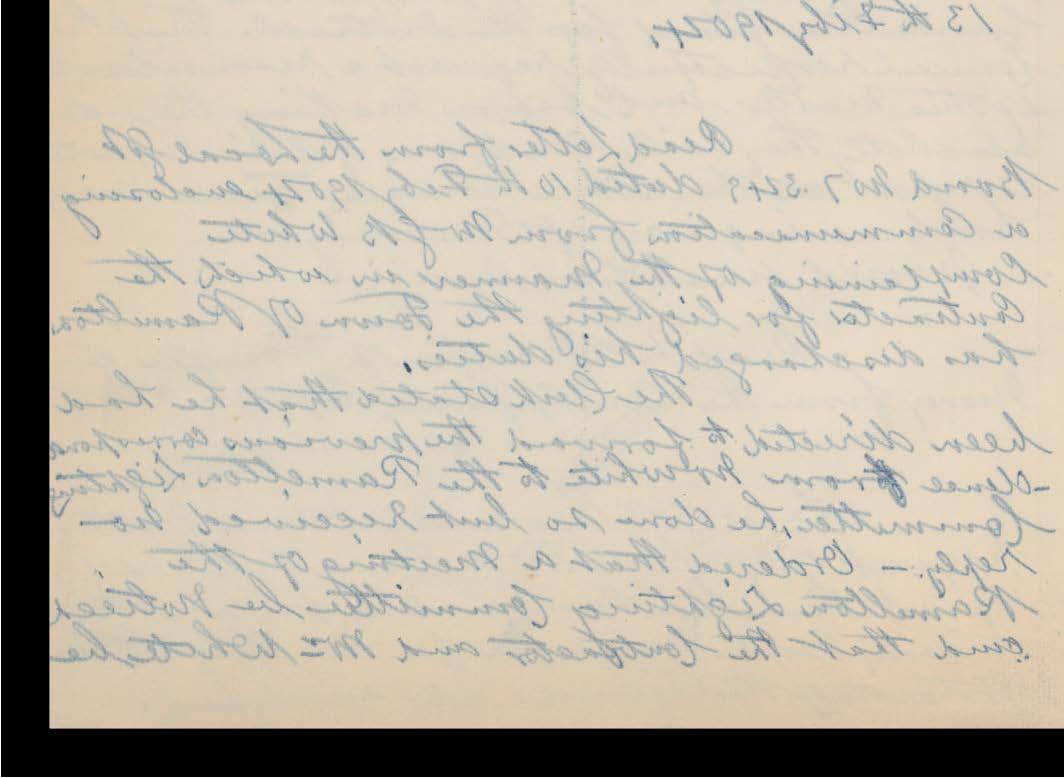 13th Feby 1904.
Read letter from the Local Gt
Board No 7.349 dated 10th Feby 1904 enclosing
a Communication from Mr JB White
Complaining of the Manner in which the
Contractor for lighting the Town of Ramelton
has discharged his duties.
The Clerk stated that he had
been directed to forward the previous correspond
-dence from Mr White to the Ramelton Lighting
Committee, he done so but received no
reply. — Ordered that a Meeting of the
Ramelton Lighting Committee be Noticed
and that the Contractor and Mr White be